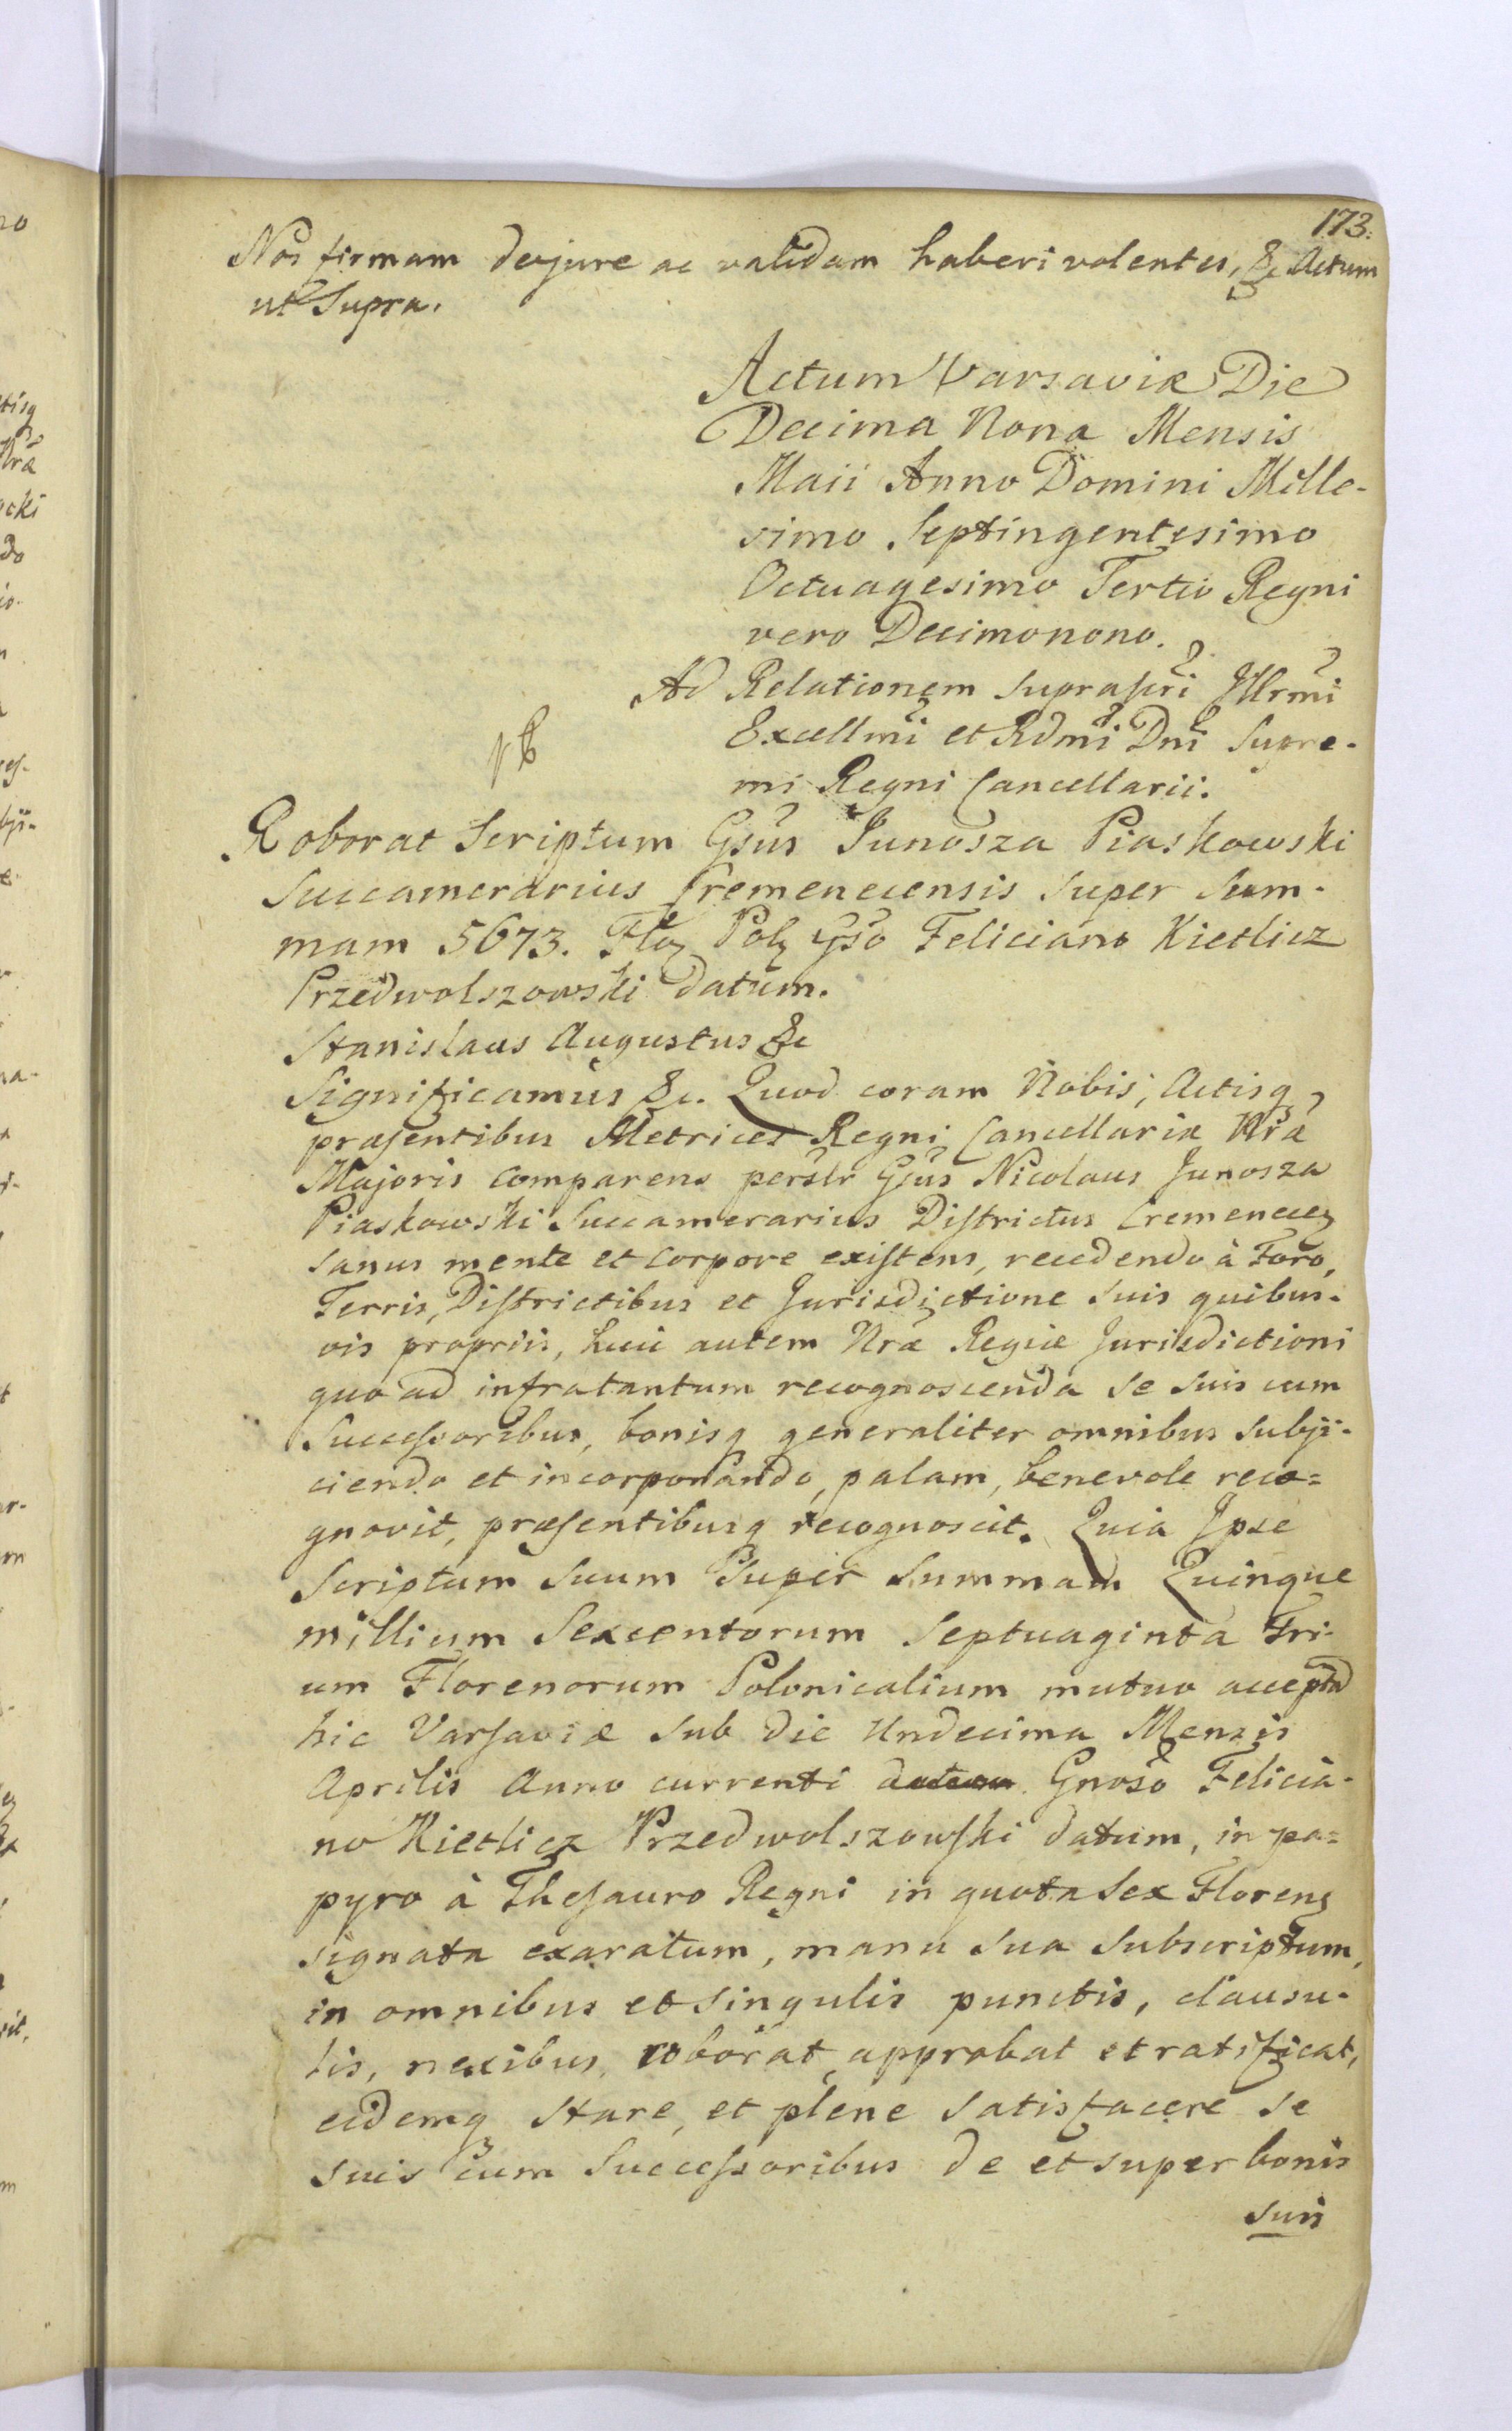 173.
Nos firmam dejure ac validam haberi volentes, &c Actum
ut Supra.
Actum Varsaviæ Die
Decima Nona Mensis
Maii Anno Domini Mille-
simo Septingentesimo
Octuagesimo Tertio Regni
vero Decimonono.
Ad Relationem supraſcri Jllrmi
Excellmi et Rdmi Dni Supre-
mi Regni Cancellarii.
Roborat Scriptum Gsus Junosza Piaskowski
Succamerarius Cremenecensis super Sum-
mam 5673. Floꝫ Polꝫ Gso Feliciano Kietlicz
Przedwolszowski datum.
Stanislaus Augustus &c
Significamus &c. Quod coram Nobis, Actisq
præſentibus Metrices Regni Cancellariæ Nræ
Majoris comparens perslr Gsus Nicolaus Junosza
Piaskowski Succamerarius Diſtrictus Cremenecꝫ
sanus mente et corpore exiſtens, recedendo à Foro,
Terris, Diſtrictibus et Jurisdictione suis quibus-
vis propriis, huic autem Nræ Regiæ Jurisdictioni
quo ad infratantum recognoscenda se suis cum
Succeſsoribus, bonisq generaliter omnibus subji-
ciendo et incorporando, palam, benevole reco=
gnovit, præſentibusq recognoscit. Quia Ipse
Scriptum suum super summam Quinque
millium Sexcentorum Septuaginta Tri-
um Florenorum Polonicalium mutuo accepta
hic Varſaviæ sub die Undecima Mensis
Aprilis Anno currenti datum Gnoso Felicia-
no Kietlicz Przedwolszowſki datum, in pa=
pyro à Theſauro Regni in quota sex Florenꝫ
signata exaratum, manu sua subscriptum,
in omnibus et singulis punctis, clausu-
lis, nexibus, roborat approbat et ratificat,
eidemq stare, et plene satisfacere se
suis cum Succeſsoribus de et super bonis
suis